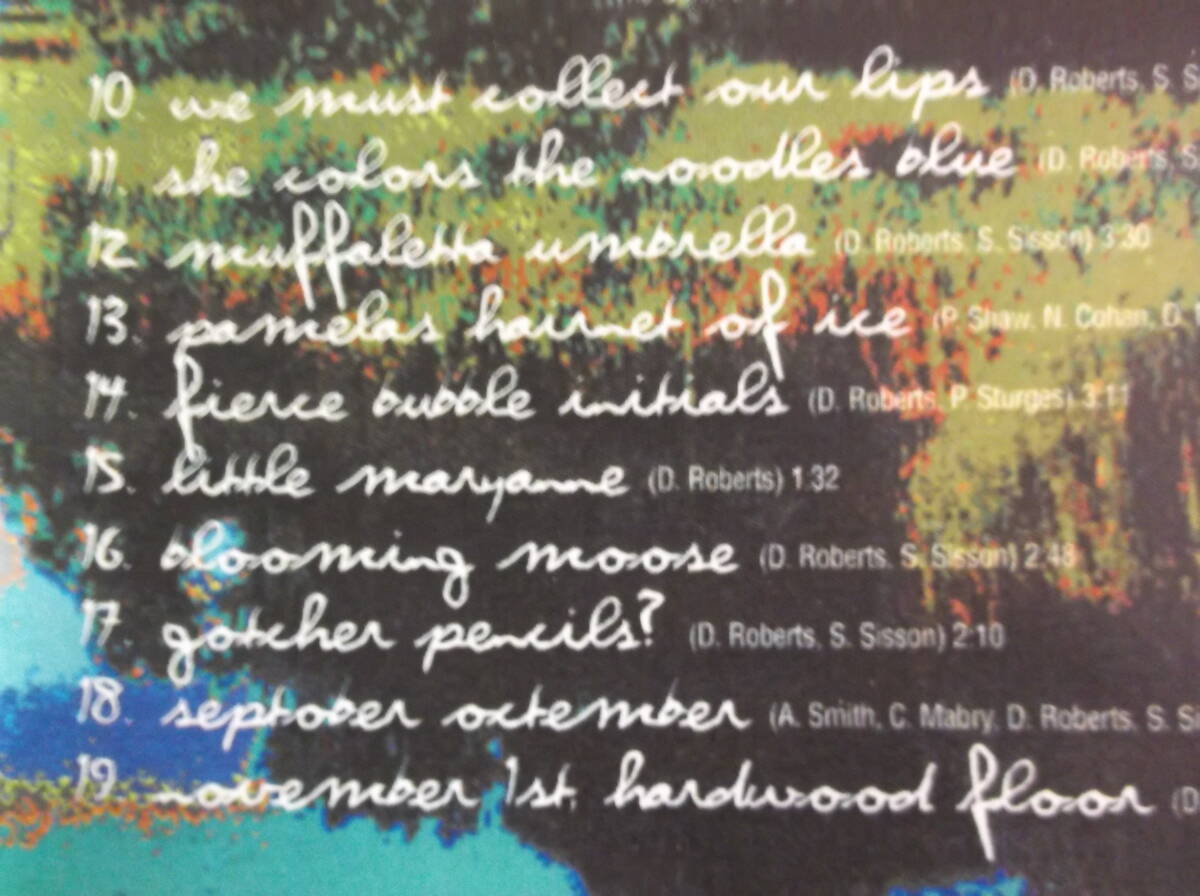 10. we must collect our lips (D. Roberts, S. S
11. she colors the noodles blue (D. Roberts, S.
12. muffaletta umbrella (D. Roberts, S. Sisson) 3:30
13. pamelas hairnet of ice (P. Shaw, N. Cohan, D.
14. fierce bubble initials (D. Roberts, P. Sturges) 3:11
15. little maryanne (D. Roberts) 1:32
16. blooming moose (D. Roberts, S. Sisson) 2:48
17. gotcher pencils? (D. Roberts, S. Sisson) 2:10
18. septober octember (A. Smith, C. Mabry, D. Roberts, S. S
19. november 1st, hardwood floor (D